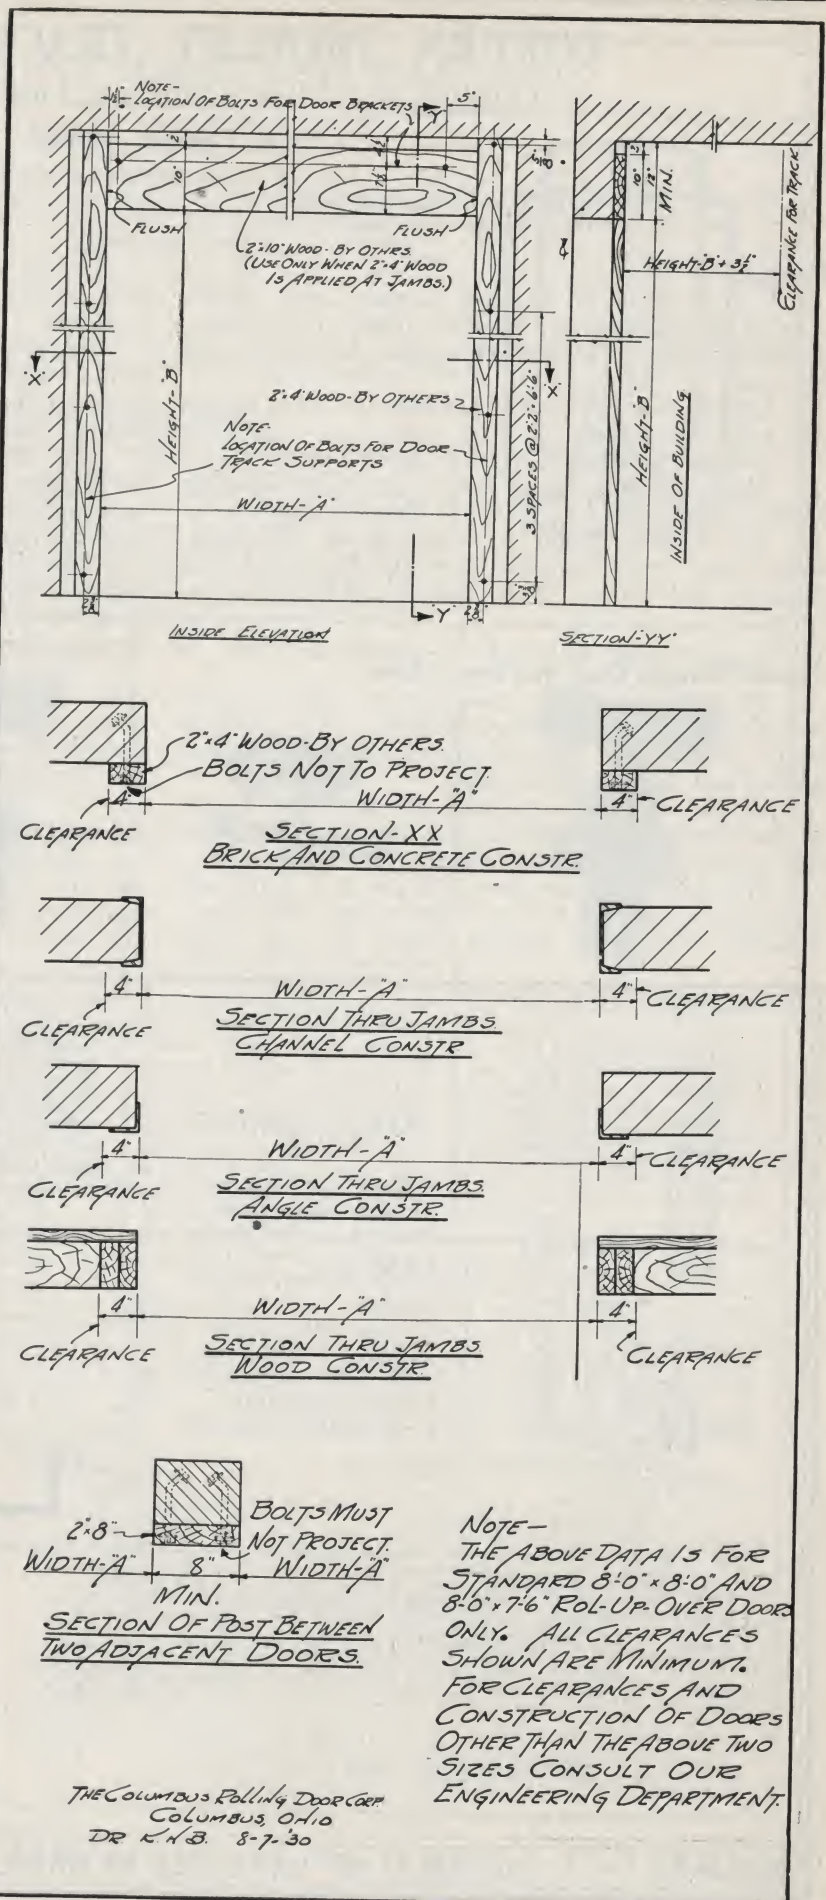 NOTE-
LOCATION OF BOLTS FOR DOOR BRACKETS
1½"
"Y"
5"
2"
4½"
10"
7½"
FLUSH
FLUSH
2"×10" WOOD- BY OTHRS.
(USE ONLY WHEN 2"×4" WOOD
IS APPLIED AT JAMBS.)
"X"
"X"
HEIGHT-"B"
2"×4" WOOD-BY OTHERS
NOTE-
LOCATION OF BOLTS FOR DOOR
TRACK SUPPORTS
3 SPACES @ 2'2"= 6'6"
WIDTH-"A"
"Y"
INSIDE ELEVATION
2"
10"
12"
MIN.
CLEARANCE FOR TRACK
HEIGHT-"B"+3½"
HEIGHT-"B"
INSIDE OF BUILDING
SECTION-"YY"
2"×4" WOOD-BY OTHERS.
BOLTS NOT TO PROJECT.
4" WIDTH-"A" 4" CLEARANCE
CLEARANCE
SECTION-XX
BRICK AND CONCRETE CONSTR.
4" WIDTH-"A" 4" CLEARANCE
CLEARANCE
SECTION THRU JAMBS.
CHANNEL CONSTR
4" WIDTH-"A" 4" CLEARANCE
CLEARANCE
SECTION THRU JAMBS.
ANGLE CONSTR.
4" WIDTH-"A" 4"
CLEARANCE
CLEARANCE
SECTION THRU JAMBS
WOOD CONSTR.
BOLTS MUST
2"×8"
NOT PROJECT.
WIDTH-"A" 8" WIDTH-"A"
MIN.
SECTION OF POST BETWEEN
TWO ADJACENT DOORS.
NOTE-
THE ABOVE DATA IS FOR
STANDARD 8'-0" × 8'-0" AND
8'-0" × 7'-6" ROL-UP-OVER DOORS
ONLY. ALL CLEARANCES
SHOWN ARE MINIMUM.
FOR CLEARANCES AND
CONSTRUCTION OF DOORS
OTHER THAN THE ABOVE TWO
SIZES CONSULT OUR
ENGINEERING DEPARTMENT.
THE COLUMBUS ROLLING DOOR CORP.
COLUMBUS, OHIO
DR. K.H.B. 8-7-'30